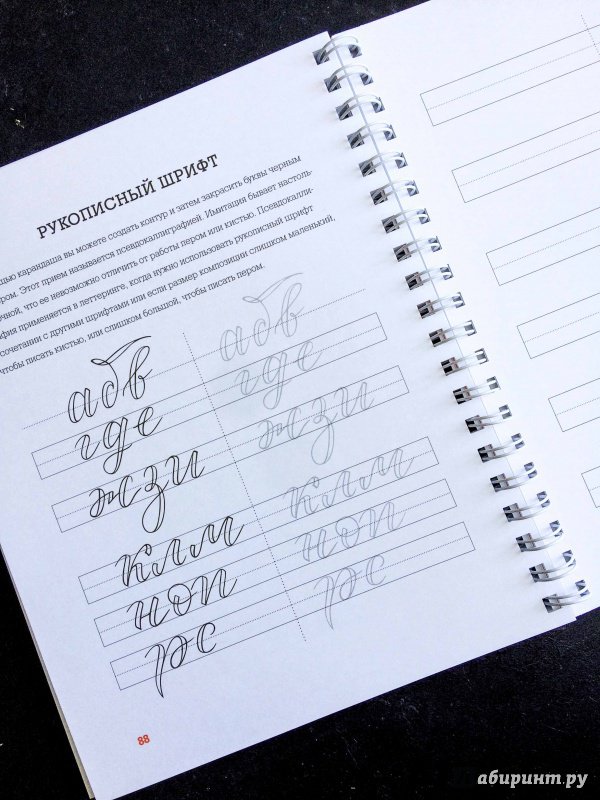 РУКОПИСНЫЙ ШРИФТ
карандаша вы можете создать контур и затем закрасить буквы черным
Этот прием называется псевдокаллиграфией. Имитация бывает настоль-
что ее невозможно отличить от работы пером или кистью. Псевдокалли-
применяется в леттеринге, когда нужно использовать рукописный шрифт
сочетании с другими шрифтами или если размер композиции слишком маленький,
чтобы писать кистью, или слишком большой, чтобы писать пером.
абв абв
где где
жзи жзи
клм клм
ноп ноп
рс рс
88
абиринт.ру